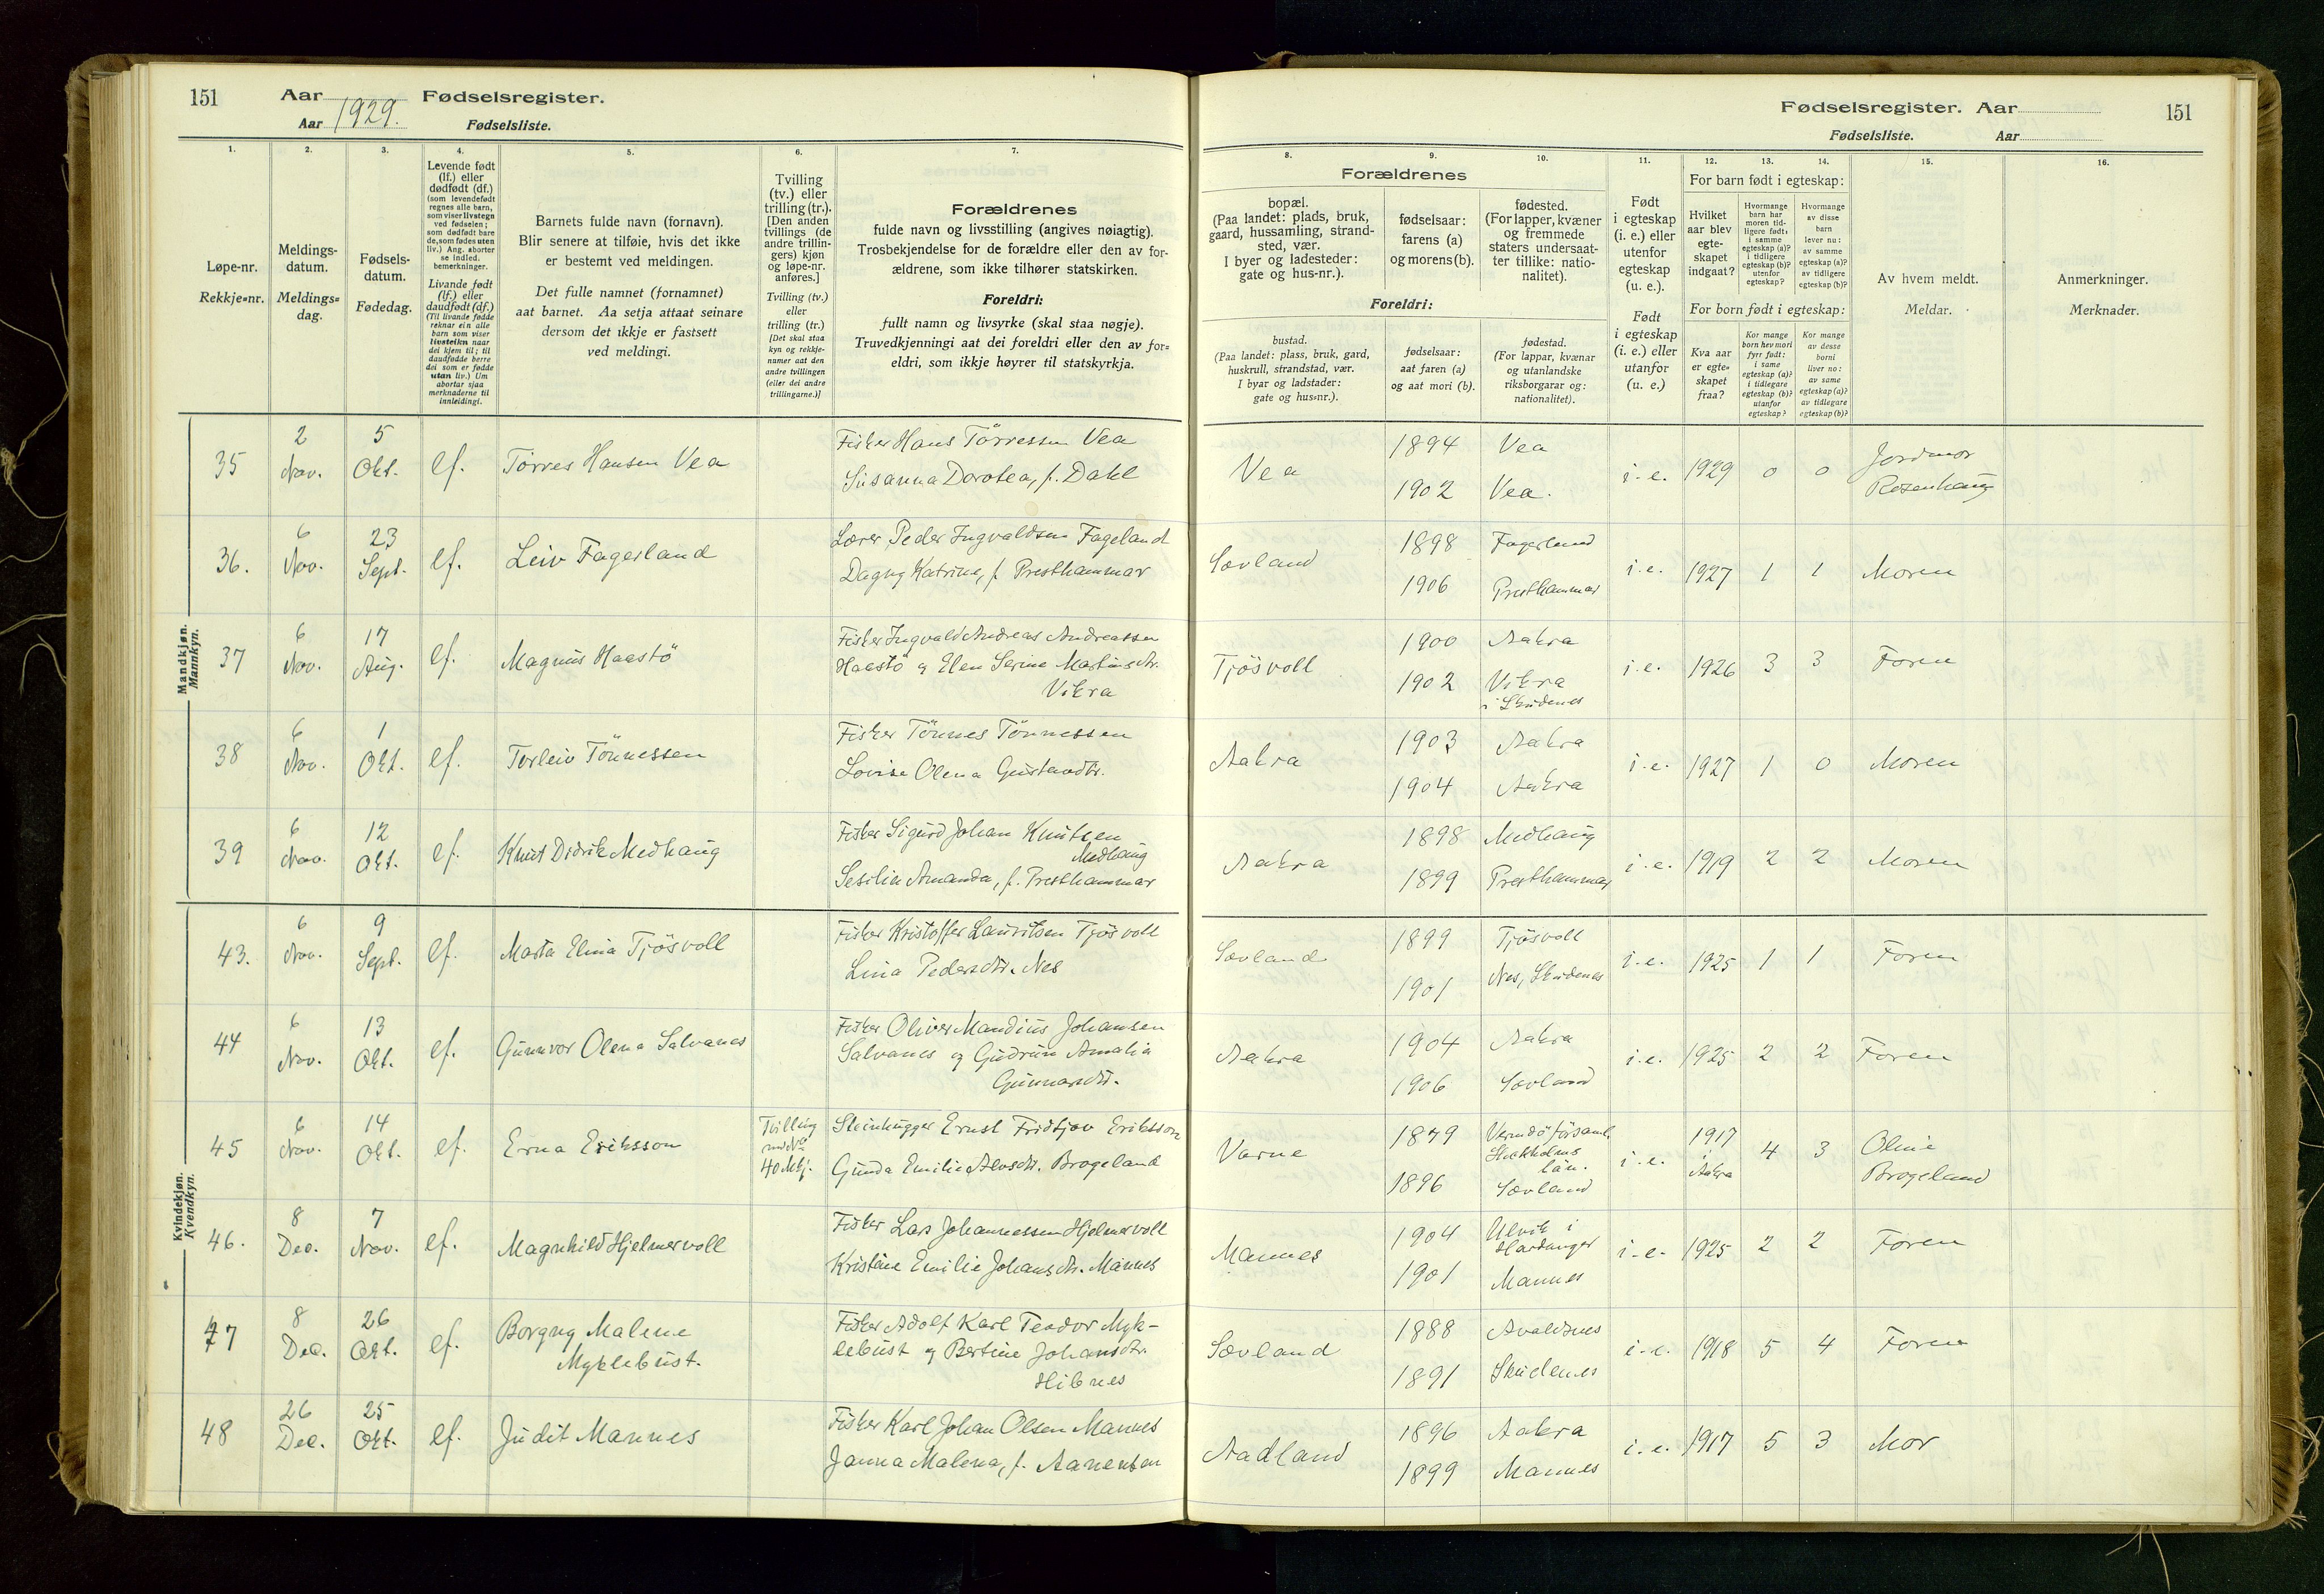 151
Aar
Fødselsregister.
Aar 1929.
Fødselsliste.
Fødselsregister. Aar
151
Fødselsliste. Aar
1.
2.
3.
4.
5.
6.
7.
8.
9.
10.
11.
12.
13.
14.
15.
16.
Løpe-nr.
Rekkje=nr.
Meldings-
datum.
Meldings=
dag.
Fødsels-
datum.
Fødedag.
Levende født
(lf.) eller
dødfødt (df.)
(som levendefødt
regnes alle barn,
som viser livstegn
ved fødselen;
som dødfødt bare
de, som fødes uten
liv.) Ang. aborter
se indled.
bemerkninger.
Livande født
(lf.) eller
daudfødt (df.)
(Til livande fødde
reknar ein alle
barn som viser
livsteikn naar
dei kjem til; til
daudfødde berre
dei som er fødde
utan liv.) Um
abortar sjaa
merknaderne til
innleidingi.
Barnets fulde navn (fornavn).
Blir senere at tilføie, hvis det ikke
er bestemt ved meldingen.
Det fulle namnet (fornamnet)
aat barnet. Aa setja attaat seinare
dersom det ikkje er fastsett
ved meldingi.
Tvilling
(tv.) eller
trilling (tr.).
[Den anden
tvillings (de
andre trillin-
gers) kjøn
og løpe-nr.
anføres.]
Tvilling (tv.)
eller
trilling (tr.)
[Det skal staa
kyn og rekkje-
numer aat den
andre tvillingen
(eller dei andre
trillingarne.)]
Forældrenes
fulde navn og livsstilling (angives nøiagtig).
Trosbekjendelse for de forældre eller den av for-
ældrene, som ikke tilhører statskirken.
Foreldri:
fullt namn og livsyrke (skal staa nøgje).
Truvedkjenningi aat dei foreldri eller den av for=
eldri, som ikkje høyrer til statskyrkja.
Forældrenes
bopæl.
(Paa landet: plads, bruk,
gaard, hussamling, strand-
sted, vær.
I byer og ladesteder:
gate og hus-nr.).
fødselsaar:
farens (a)
og morens (b).
fødested.
(For lapper, kvæner
og fremmede
staters undersaat-
ter tillike: natio-
nalitet).
Foreldri:
bustad.
(Paa landet: plass, bruk, gard,
huskrull, strandstad, vær.
I byar og ladstader:
gate og hus=nr.).
fødselsaar:
aat faren (a)
og aat mori (b).
fødestad.
(For lappar, kvænar
og utanlandske
riksborgarar og:
nationalitet).
Født
i egteskap
(i. e.) eller
utenfor
egteskap
(u. e.).
Født
i egteskap
(i. e.) eller
utanfor
(u. e.)
For barn født i egteskap:
Hvilket
aar blev
egte-
skapet
indgaat?
Hvormange
barn har
moren tid-
ligere født:
i samme
egteskap (a)?
i tidligere
egteskap (b)?
utenfor
egteskap?
Hvormange
av disse
barn
lever nu:
av samme
egteskap (a)?
av tidligere
egteskap (b)?
For born født i egteskap:
Kva aar
er egte=
skapet
fraa?
Kor mange
born hev mori
fyrr født:
i same
egteskap (a)?
i tidlegare
egteskap (b)?
utanfor
egteskap?
Kor mange
av desse
borni
liver no:
av same
egteskap (a)?
av tidlegare
egteskap (b)?
Av hvem meldt.
Meldar.
Anmerkninger.
Merknader.
Mandkjøn.
Mannkyn.
35
2
Nov.
5
Okt.
lf.
Törres Hansen Vea
Fisker Hans Törressen Vea
Susanna Dorotea, f. Dahl
Vea
1894 Vea
1902 Vea.
i. e. 1929 0 0
Jordmor
Rosenhaug
36.
6
Nov.
23
Sept.
lf.
Leiv Fagerland
Lærer Peder Ingvaldsen Fageland
Dagny Katrine, f. Presthammar
Sævland
1898 Fagerland
1906 Presthammar
i. e. 1927 1 1 Moren
37
6
Nov.
17
Aug.
lf.
Magnus Haastö
Fisker Ingvald Andreas Andreassen
Haastö og Elen Serine Martinsdtr.
Vikra
Tjösvoll
1900 Aakra
1902 Vikra
i Skudenes
i. e. 1926 3 3 Faren
38
6
Nov.
1
Okt.
lf.
Torleiv Tönnessen
Fisker Tönnes Tönnessen
Lovise Olena Gustavdtr.
Aakra
1903 Aakra
1904 Aakra
i. e. 1927 1 0 Moren
39
6
Nov.
12
Okt.
lf.
Knut Didrik Medhaug
Fisker Sigurd Johan Knutsen
Medhaug
Sesilie Amanda, f. Presthammar
Aakra
1898 Medhaug
1899 Presthammar
i. e. 1919 2 2 Moren
Kvindekjøn.
Kvendkyn.
43.
6
Nov.
9
Sept.
lf.
Marta Elina Tjösvoll
Fisker Kristoffer Lauritsen Tjösvoll
Lina Pedersdtr. Nes
Sævland
1899 Tjösvoll
1901 Nes, Skudenes
i. e. 1925 1 1 Faren
44
6
Nov.
13
Okt.
lf.
Gunnvor Olena Salvanes
Fisker Oliver Mandius Johansen
Salvanes og Gudrun Amalia
Gunnarsdtr.
Aakra
1904 Aakra
1906 Sævland
i. e. 1925 2 2 Faren
45
6
Nov.
14
Okt.
lf.
Erna Eriksson
Tvilling
med nr
40 Mkj.
Steinhugger Ernst Fridtjov Eriksson
Gunda Emilie Aevsdtr. Brogeland
Varne
1879 Vermdö församl.
Stockholms
län.
1896 Sævland
i. e.
1917
i
Aakra
4 3
Oline
Brogeland
46.
8
Dec.
7
Nov.
lf.
Magnhild Hjelmervoll
Fisker Lars Johannessen Hjelmervoll
Kristine Emilie Johansdtr. Mannes
Mannes
1904 Ulvik i
Hardanger
1901 Mannes
i. e. 1925 2 2 Faren
47
8
Dec.
26
Okt.
lf.
Borgny Malene
Myklebust.
Fisker Adolf Karl Teodor Myk-
lebust og Bertine Johansdtr.
Hibnes
Sævland
1888 Avaldsnes
1891 Skudenes
i. e. 1918 5 4 Faren
48
26
Dec.
25
Okt.
lf.
Judit Mannes
Fisker Karl Johan Olsen Mannes
Janna Malena, f. Aanensen
Aadland
1896 Aakra
1899 Mannes
i. e. 1917 5 3 Mor